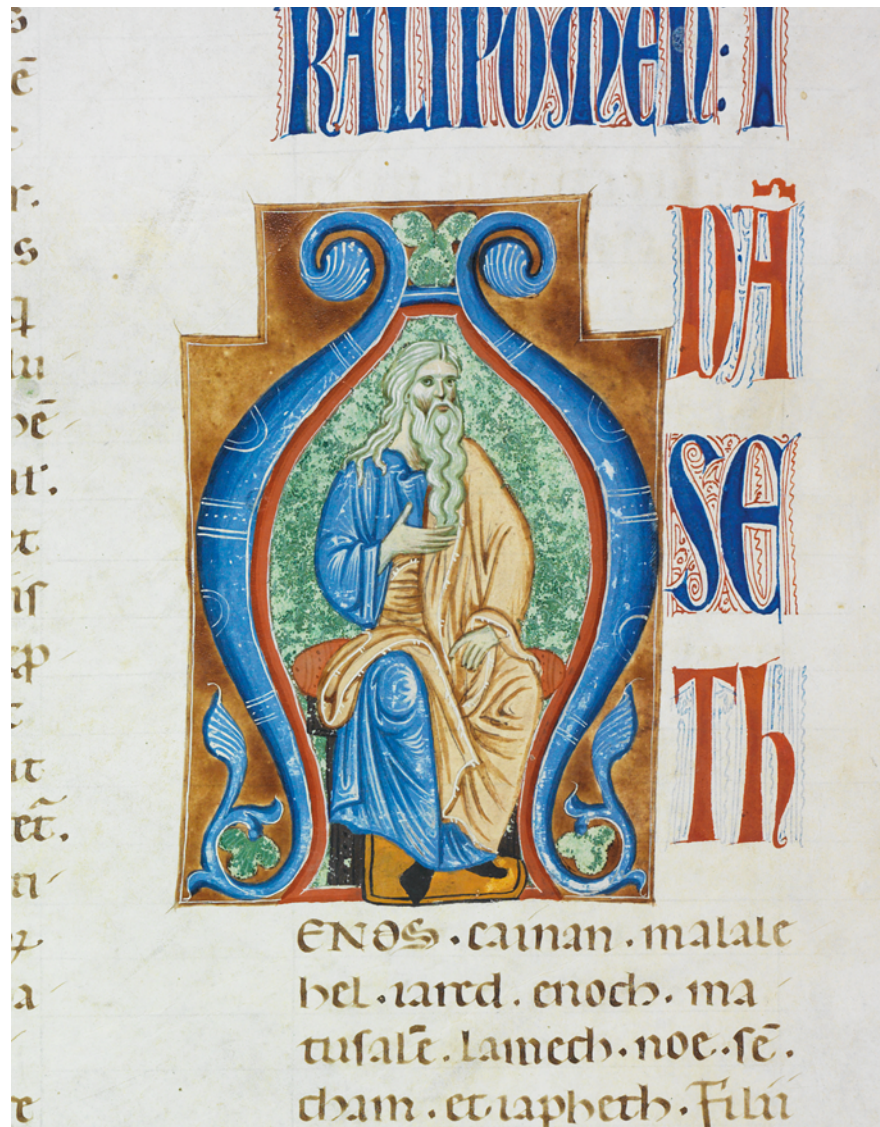 RALIPOMEN: I
ADĀ
SE
Th
ENOS · cainan · malale
hel · iared · enoch · ma
tusalē · lamech · noe · sē ·
cham · et iapheth · Filii